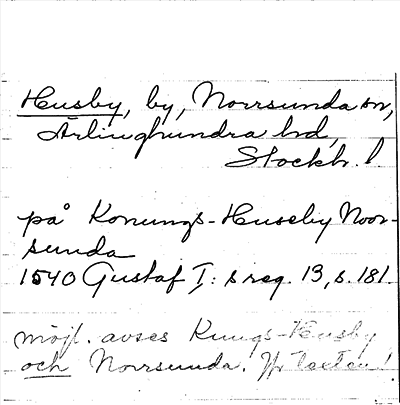 Husby, by, Norrsunda sn,
Ärlinghundra hd,
Stockh. l.
på Konungs-Huseby Noor-
sunda
1540 Gustaf I: s reg. 13, s. 181.
möjl. avses Kungs-Husby
och Norrsunda. Jfr texten!